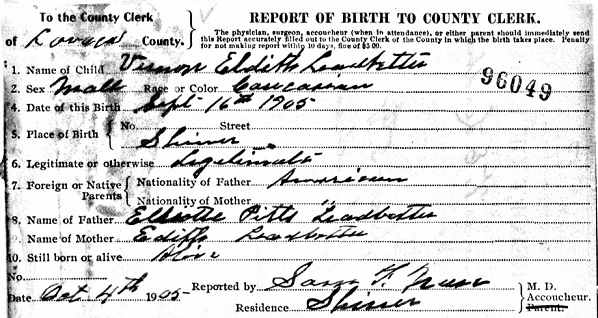 To the County Clerk
of Lavaca County.
REPORT OF BIRTH TO COUNTY CLERK.
The physician, surgeon, accoucheur (when in attendance), or either parent should immediately send
this Report accurately filled out to the County Clerk of the County in which the birth takes place. Penalty
for not making report within 10 days, fine of $5.00.
1. Name of Child Vernon Eldith Leadbetter
2. Sex Male Race or Color Caucasian
96049
4. Date of this Birth Sept 16th 1905
5. Place of Birth { No. Street
Shiner
6. Legitimate or otherwise Legitimate
7. Foreign or Native Parents { Nationality of Father American
Nationality of Mother "
8. Name of Father Pitts Leadbetter
9. Name of Mother Edith Leadbetter
10. Still born or alive Alive
No.
Date Oct 4th 1905 Reported by
Residence Shiner
M. D.
Accoucheur.
Parent.